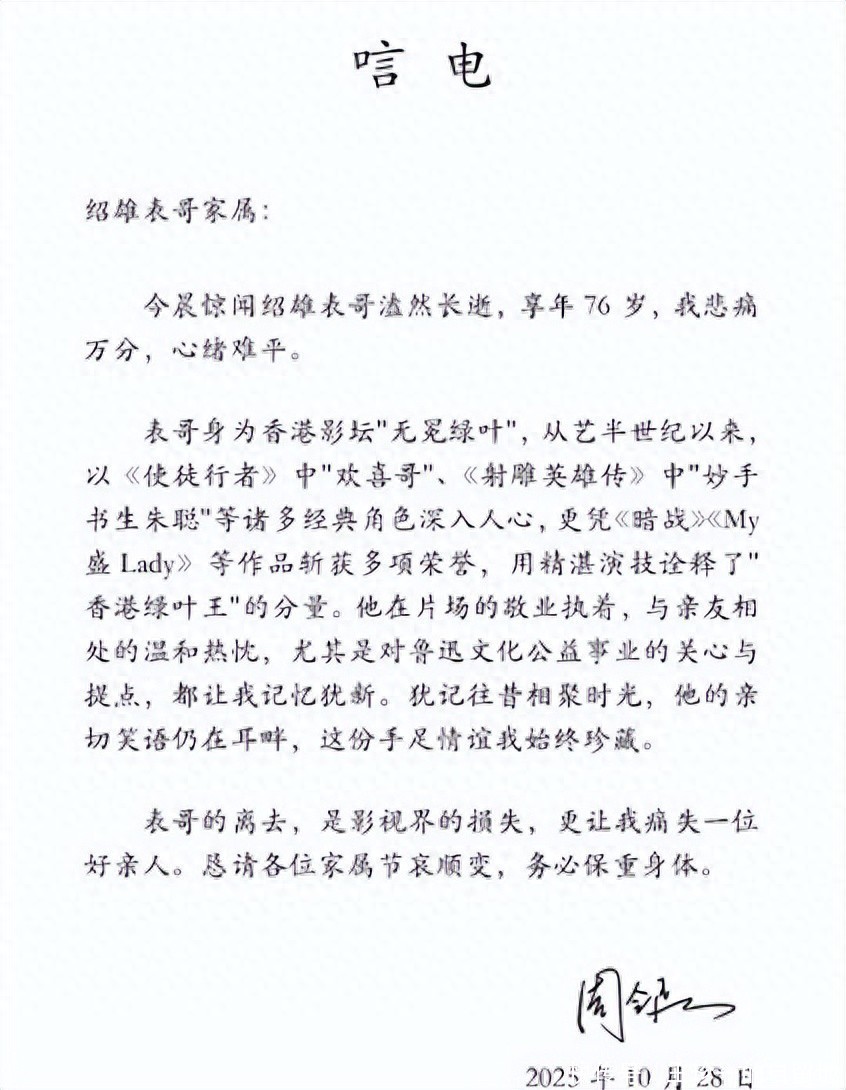 唁电
绍雄表哥家属：
今晨惊闻绍雄表哥溘然长逝，享年76岁，我悲痛
万分，心绪难平。
表哥身为香港影坛"无冕绿叶"，从艺半世纪以来，
以《使徒行者》中"欢喜哥"、《射雕英雄传》中"妙手
书生朱聪"等诸多经典角色深入人心，更凭《暗战》《My
盛Lady》等作品斩获多项荣誉，用精湛演技诠释了"
香港绿叶王"的分量。他在片场的敬业执着，与亲友相
处的温和热忱，尤其是对鲁迅文化公益事业的关心与
提点，都让我记忆犹新。犹记往昔相聚时光，他的亲
切笑语仍在耳畔，这份手足情谊我始终珍藏。
表哥的离去，是影视界的损失，更让我痛失一位
好亲人。恳请各位家属节哀顺变，务必保重身体。
2025年10月28日